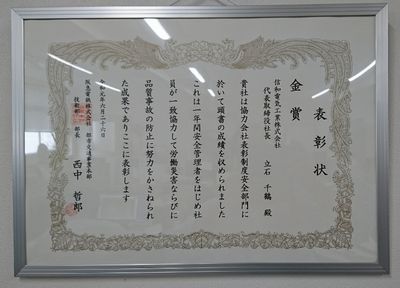 表彰状
金賞
信和電気工業株式会社
代表取締役社長 立石 千鶴 殿
貴社は協力会社表彰制度安全部門に
於いて頭書の成績を収められました
これは一年間安全管理者をはじめ社
員が一致協力して労働災害ならびに
品質事故の防止に努力をかさねられ
た成果でありここに表彰します
令和元年六月二十六日
阪急電鉄株式会社 都市交通事業本部
技術部 部長 西中 哲郎